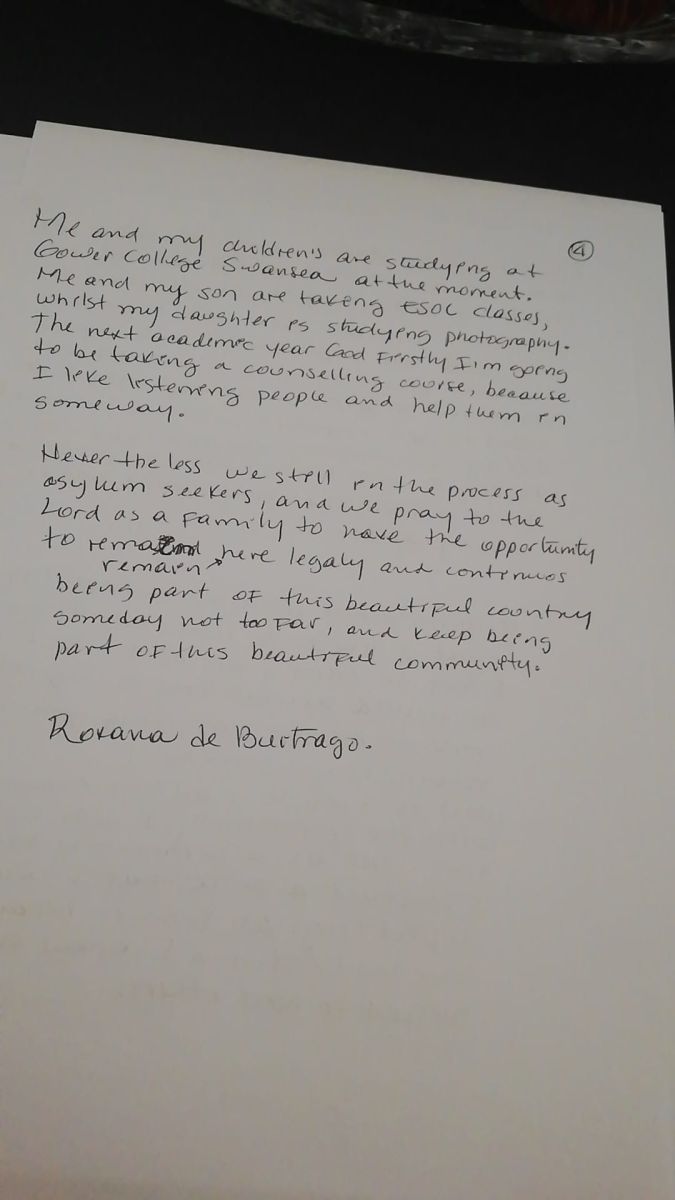 ④
Me and my children's are studying at
Gower College Swansea at the moment.
Me and my son are taking ESOL classes,
whilst my daughter is studying photography.
The next academic year God Firstly I'm going
to be taking a counselling course, because
I like listening people and help them in
someway.
Never the less we still in the process as
asylum seekers, and we pray to the
Lord as a Family to have the opportunity
to remain here legaly and continuos
remain
being part OF this beautiful country
someday not too Far, and keep being
part OF this beautiful community.
Roxana de Buitrago.